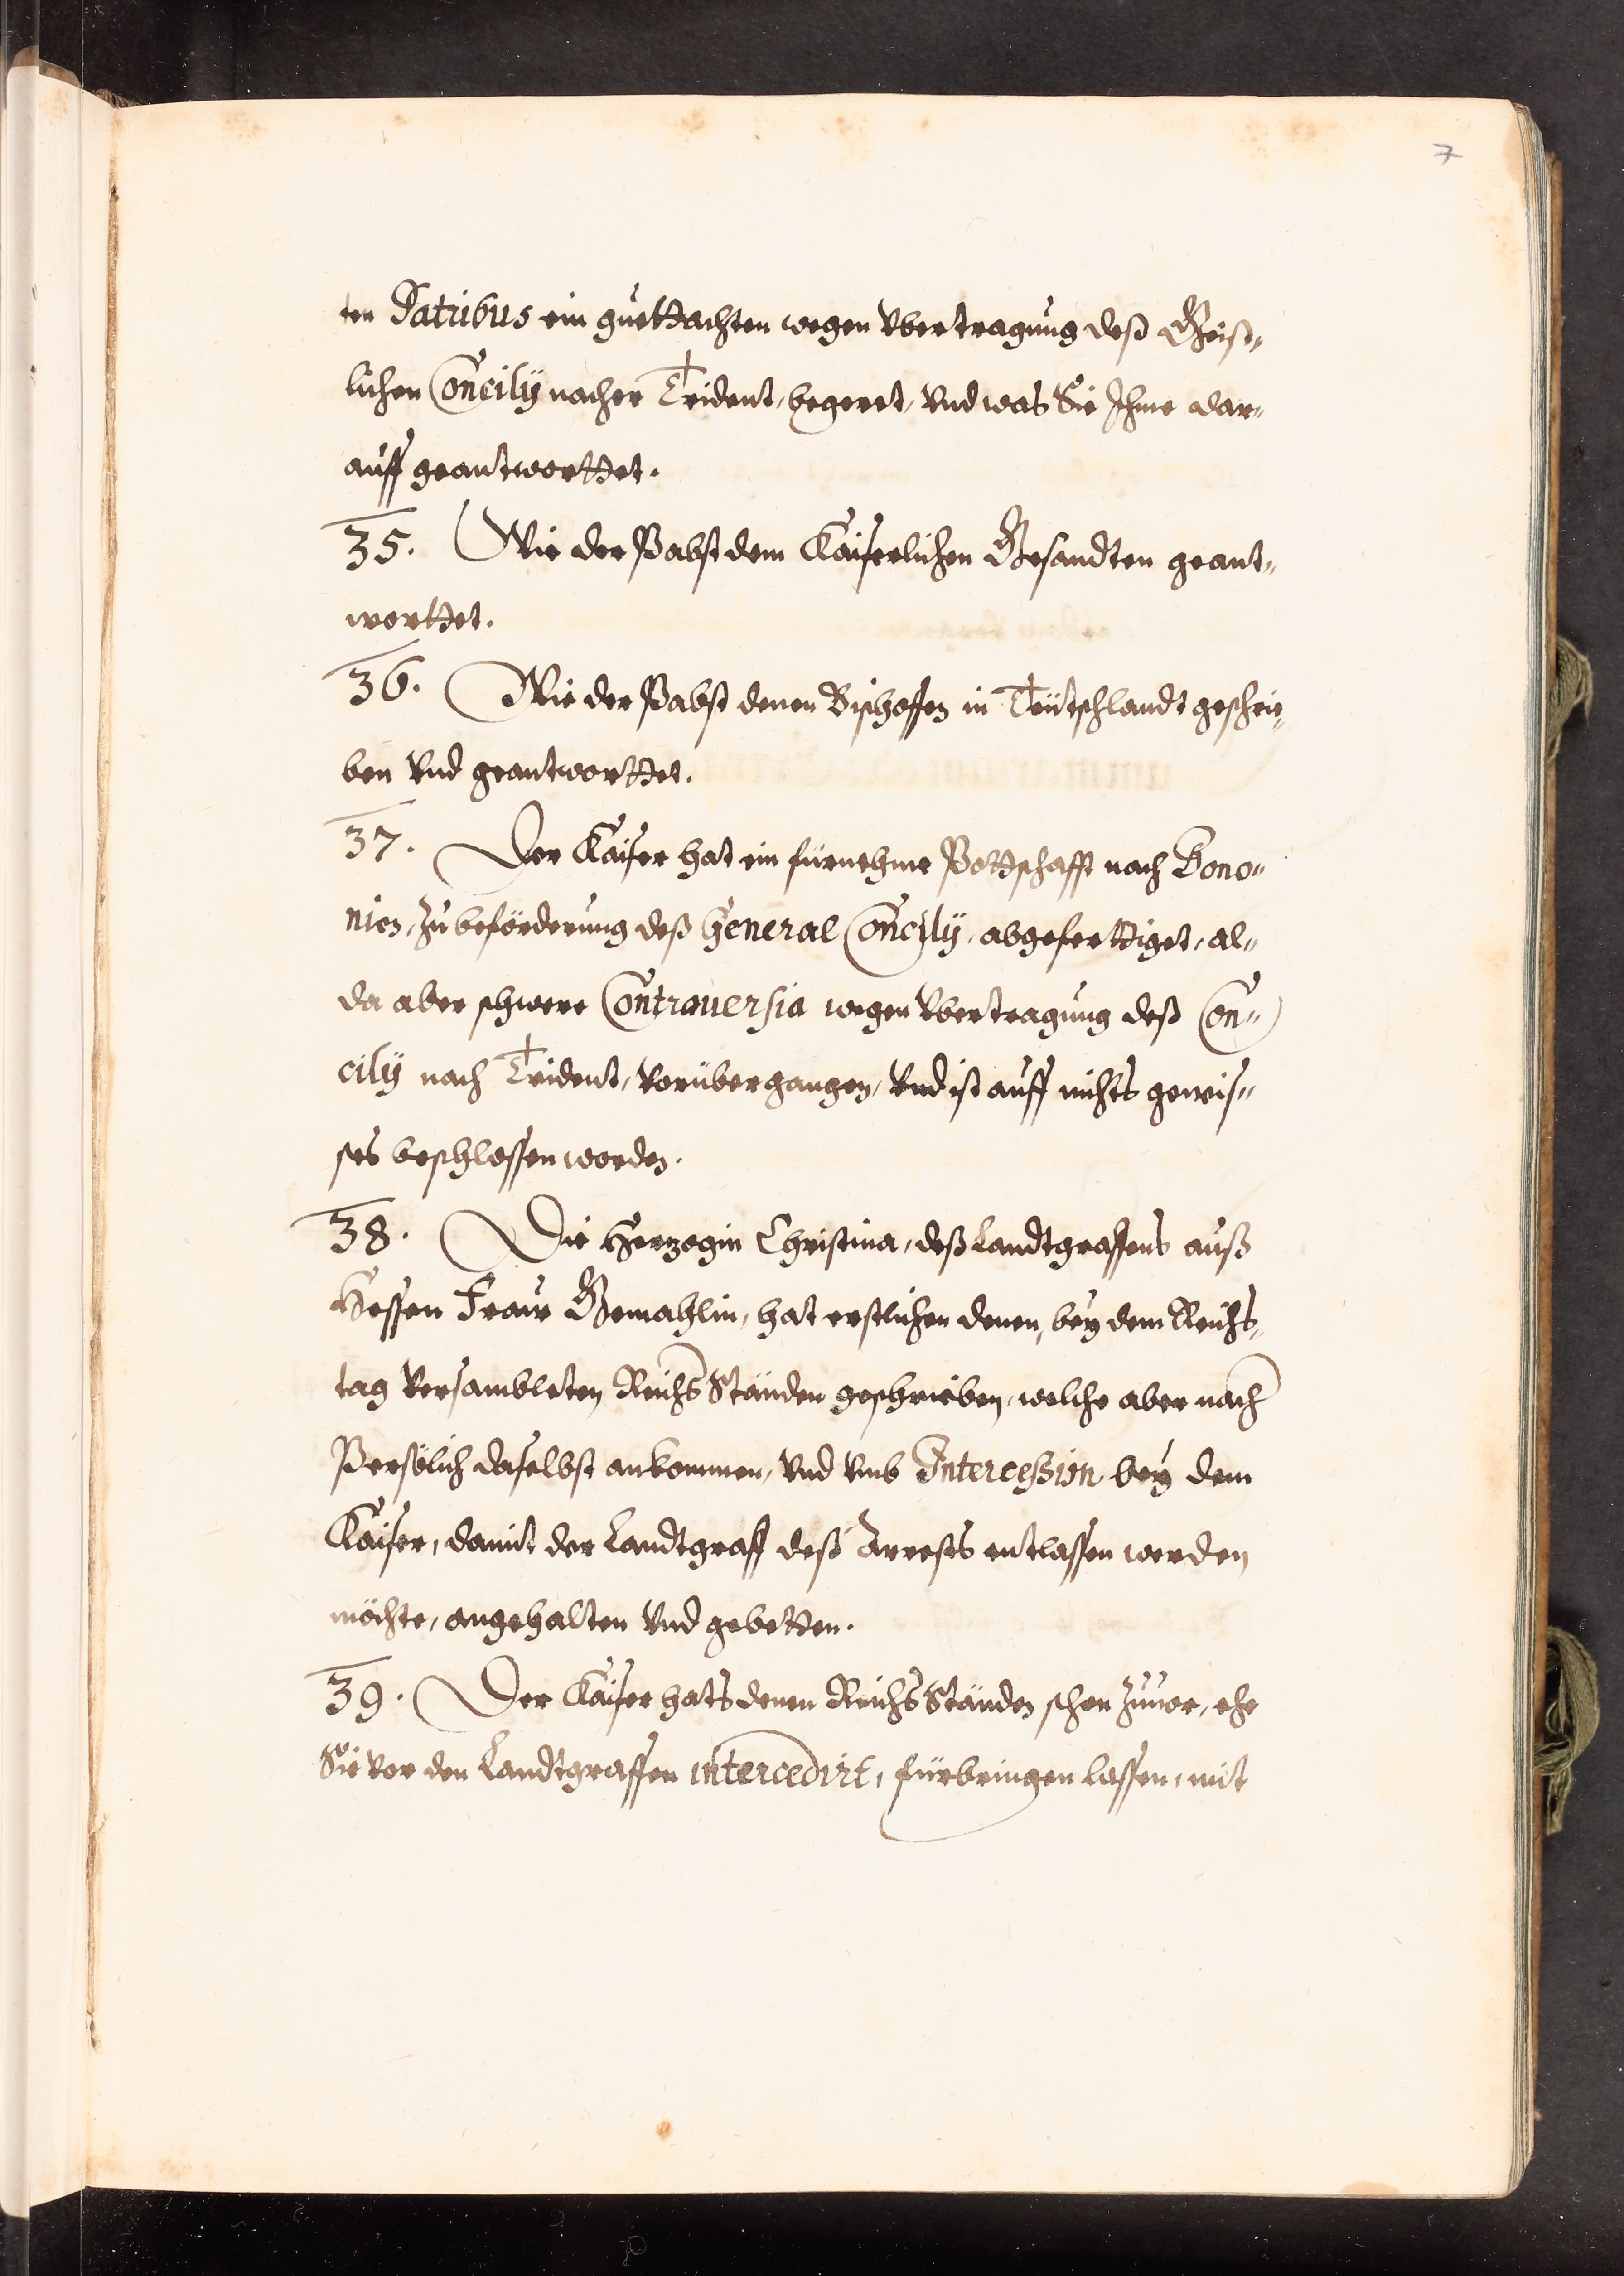 7
ten Patribus ein guettachten wegen Vbertragung deß Geist-
lichen Concilÿ nacher Trident, begeret, Vnd was Sie Ihme dar-
auff geantworttet.
35. Wie der Pabst dem Kaiserlichen Gesandten geant-
worttet.
36. Wie der Pabst denen Bischoffen in Teütschlandt geschrie-
ben Vnd geantworttet.
37. Der Kaiser hat ein fürnehme Pottschafft nach Bono-
nien, zu beförderung deß General Concilÿ, abgeferttiget, al-
da aber schwere Controuersia wegen Vbertragung deß Con-
cilÿ nach Trident, Vorübergangen, Vnd ist auff nichts gewis-
ses beschlossen worden.
38. Die Hertzogin Christina, deß Landtgraffens auß
Hessen Fraw Gemahlin, hat erstlichen denen, beÿ dem Reichs-
tag Versambleten Reichs Ständen geschrieben, welche aber nach
Persölich daselbst ankommen, Vnd Vmb Intercession beÿ dem
Kaiser, damit der Landtgraff deß Arrests entlassen werden
möchte, angehalten Vnd gebetten.
39. Der Kaiser hats denen Reichs Ständen schon zuuor, ehe
Sie Vor den Landtgraffen intercedirt, fürbringen lassen, mit